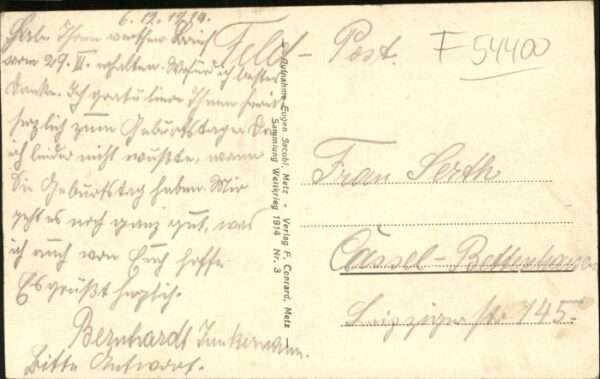 6.12.1914.
Habe Ihren werthen Brief
vom 29. XI. erhalten. Wofür ich besten
Danke. Ich gratuliere Ihnen
herzlich zum Geburtstage. Da
ich leider nicht wußte, wann
Sie Geburtstag haben. Mir
geht es noch ganz gut, was
ich auch von Euch hoffe
Es grüßt herzlich.
Bernhardt
Bitte Antwort.
Feld-Post.
F 54400
Aufnahme Eugen Jacobi, Metz • Verlag F. Conrard, Metz
Sammlung Weltkrieg 1914 Nr. 3
Frau Serth
Cassel-Bettenhausen
Leipziger Str 145.